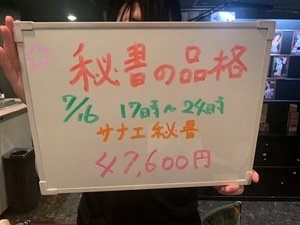 秘書の品格
7/16 17時〜24時
サナエ秘書
47,600円